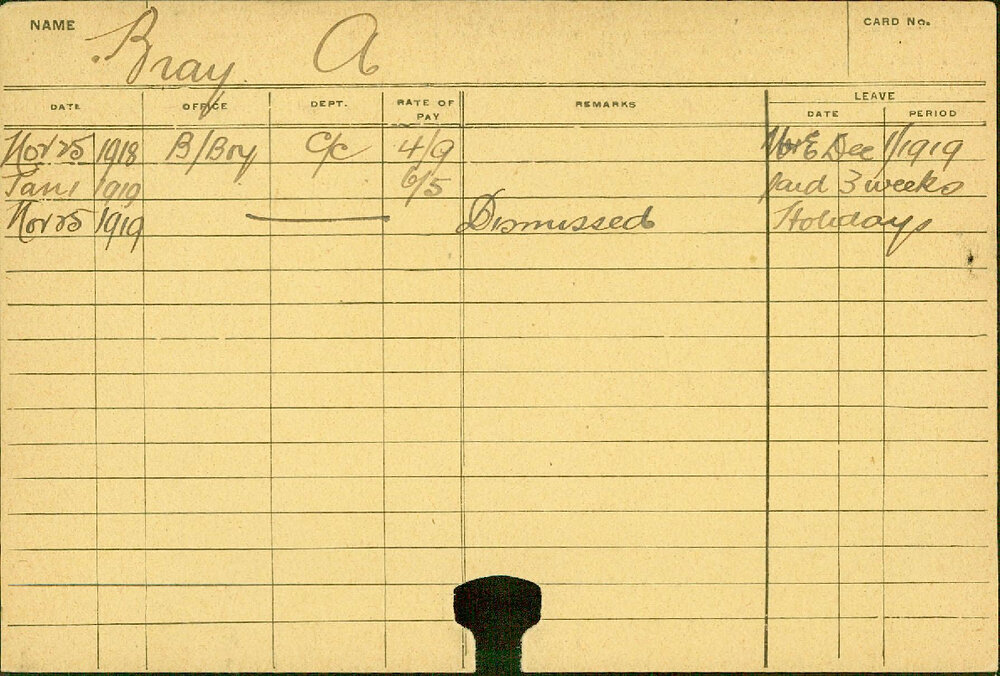 NAME Bray A CARD No.
DATE OFFICE DEPT. RATE OF PAY REMARKS LEAVE
DATE PERIOD
Nov 25 1918 B/Boy C/C 4/9 Dec 1/1919
Jan 1 1919 6/5 paid 3 weeks
Nov 25 1919 Dismissed Holidays